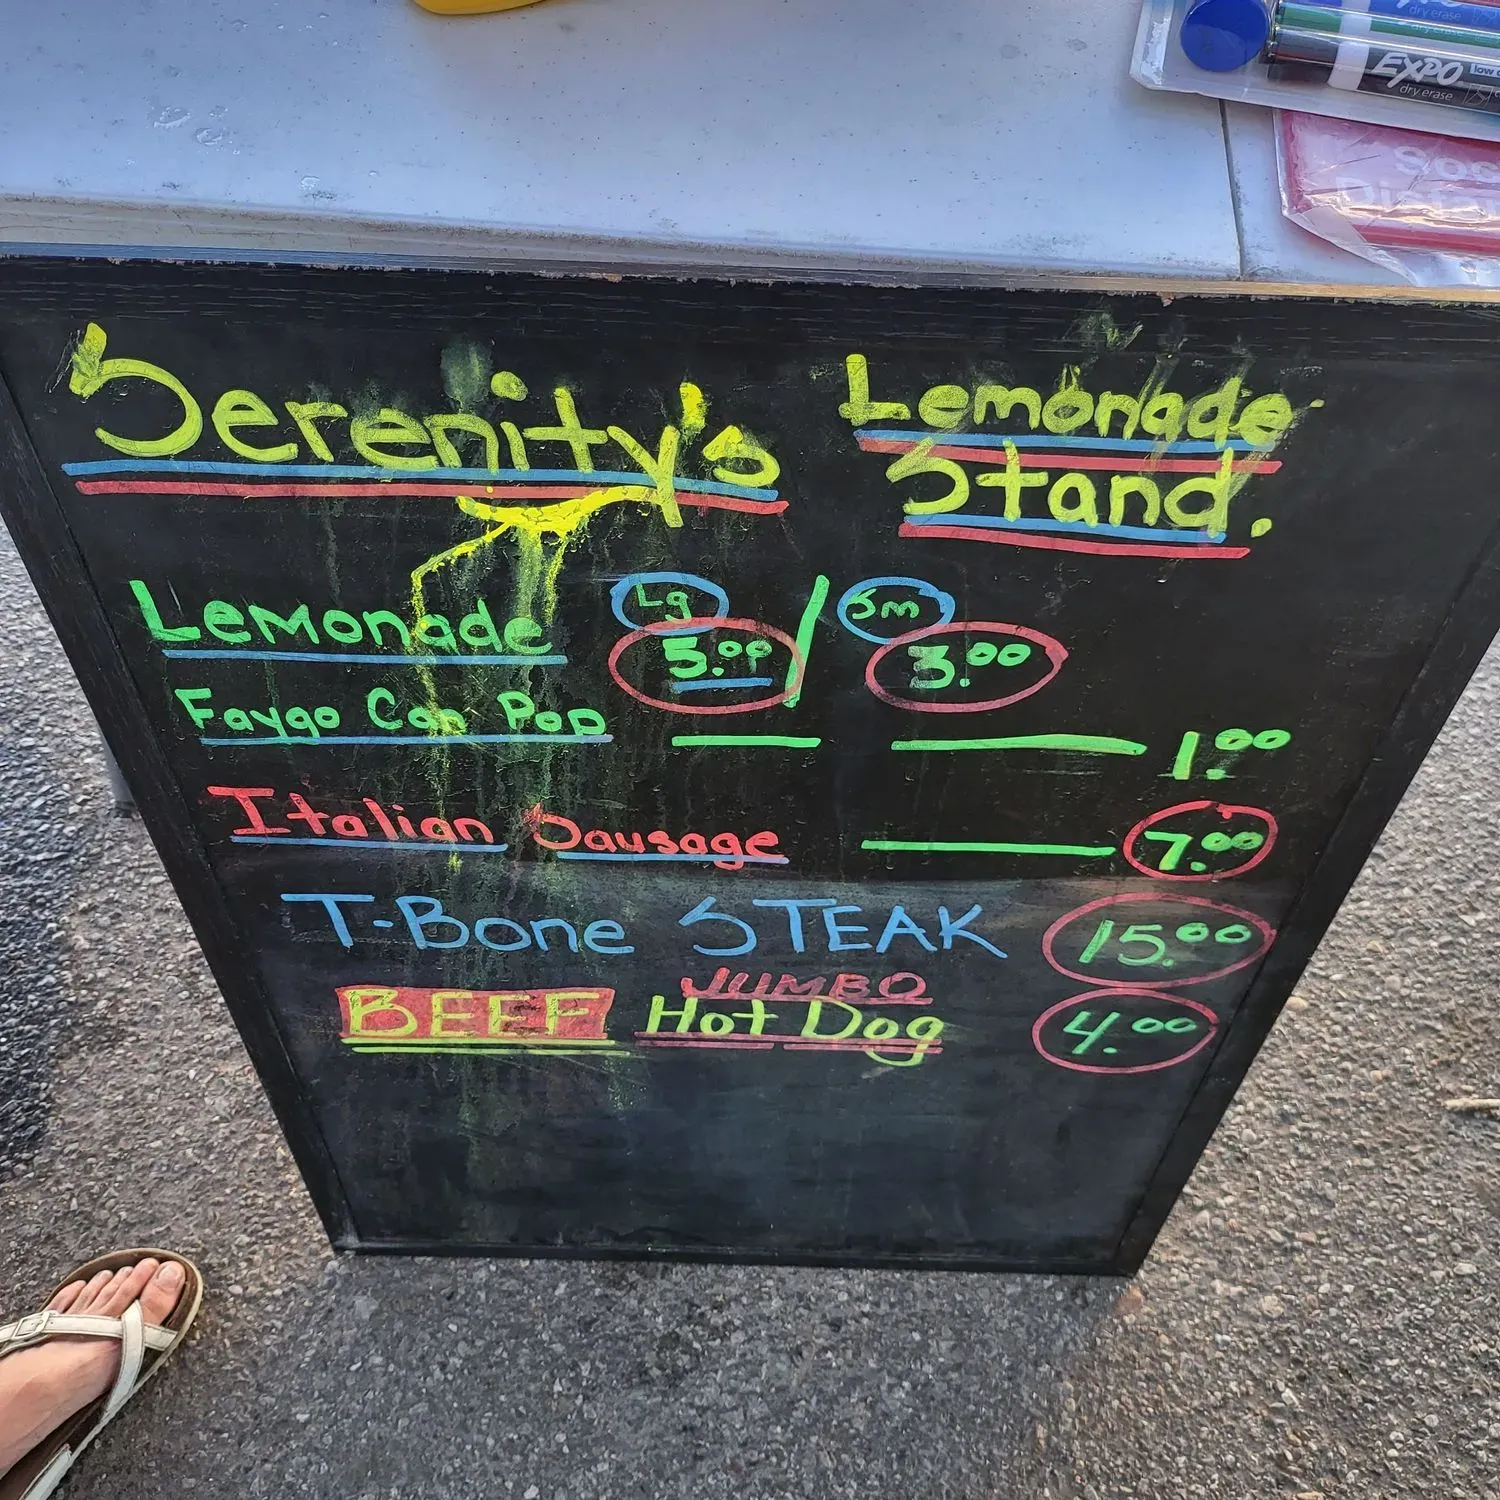 dry erase
EXPO
low
dry erase
Serenity's Lemonade
Stand.
Lemonade Lg 5.00 / Sm 3.00
Faygo Can Pop 1.00
Italian Sausage 7.00
T-Bone STEAK 15.00
JUMBO
BEEF Hot Dog 4.00